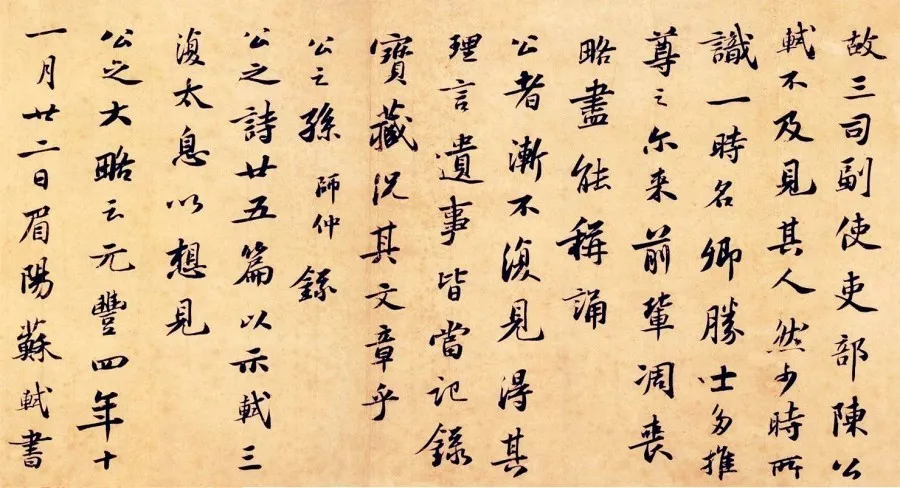 故三司副使吏部陳公
軾不及見其人然少時所
識一時名卿勝士多推
尊之尓来前輩凋喪
略盡能稱誦
公者漸不復見得其
理言遺事皆當記錄
寶藏況其文章乎
公之孫師仲錄
公之詩廿五篇以示軾三
復太息以想見
公之大略云元豐四年十
一月廿二日眉陽蘇軾書